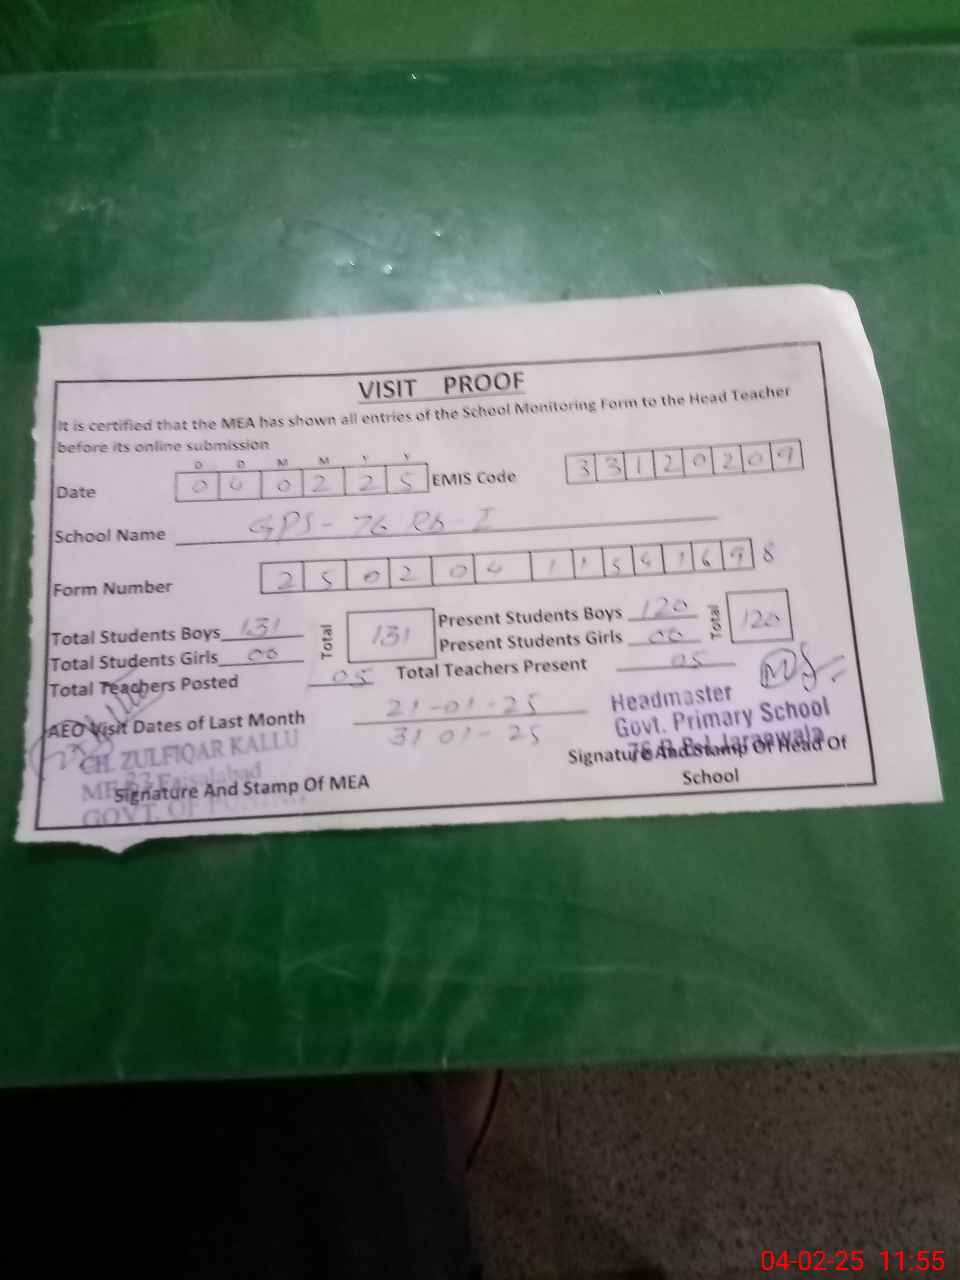 VISIT PROOF
It is certified that the MEA has shown all entries of the School Monitoring Form to the Head Teacher
before its online submission
D D M M Y Y
Date 0 4 0 2 2 5 EMIS Code 3 3 1 2 0 2 0 9
School Name GPS- 76 RB-I
Form Number 2 5 0 2 0 4 1 1 5 4 1 6 9 8
Total Students Boys 131 Total 131 Present Students Boys 120 Total 120
Total Students Girls 00 Present Students Girls 00
Total Teachers Posted 05 Total Teachers Present 05
AEO Visit Dates of Last Month 21-01-25
31 01-25
Headmaster
Govt. Primary School
76 R.B-I Jaranwala
CH. ZULFIQAR KALLU
Faisalabad
GOVT. OF
Signature And Stamp Of MEA
Signature And Stamp Of Head Of
School
04-02-25 11:55